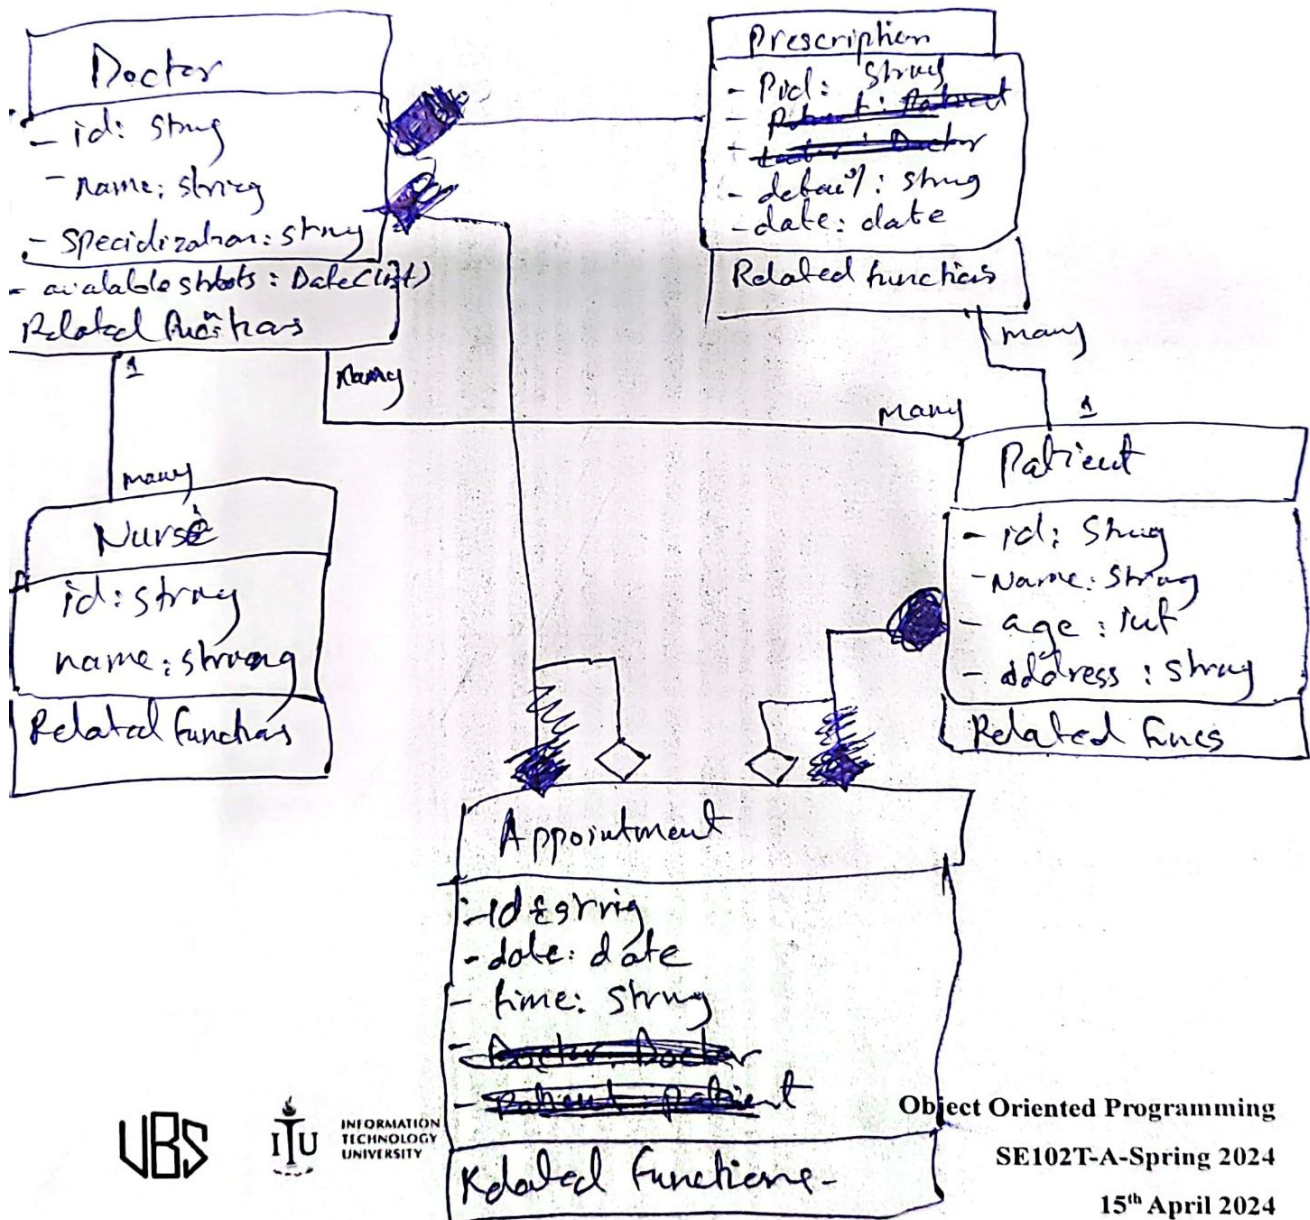 Doctor
- id: string
- name: string
- Specialization: string
- available slots: Date(list)
Related functions
1
many
many
Prescription
- Pid: string
- Patient: Patient
- Doctor: Doctor
- detail: string
- date: date
Related functions
many
1
many
Nurse
id: string
name: string
Related functions
Patient
- id: string
- Name: string
- age: int
- address: string
Related funcs
Appointment
- id: string
- date: date
- time: string
- Doctor: Doctor
- Patient: patient
Related functions-
UBS
ITU
INFORMATION
TECHNOLOGY
UNIVERSITY
Object Oriented Programming
SE102T-A-Spring 2024
15th April 2024